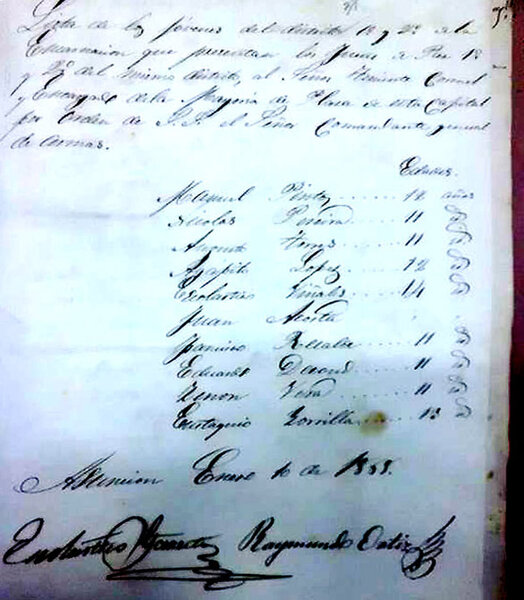 Lista de los jóvenes del distrito 1º y 2º de la
Encarnacion que presentan los Jueces de Paz 1º
y 2º del mismo distrito, al Señor Teniente Coronel
y Encargado de la Mayoria de Plaza de esta Capital
por orden de S.S. el Señor Comandante general
de armas.
Edades.
Manuel ........ 12 años
Nicolas Pereira ........ 11 id
Augusto ........ 11 id
Agapito Lopez ........ 12 id
Escolastico Viñales ........ 14 id
Juan Acosta
Recalde ........ 11 id
Eduardo ........ 11 id
Zenon Vera ........ 11 id
Eustaquio Zorrilla ........ 13 id
Asuncion Enero 10 de
Raymundo Ortiz